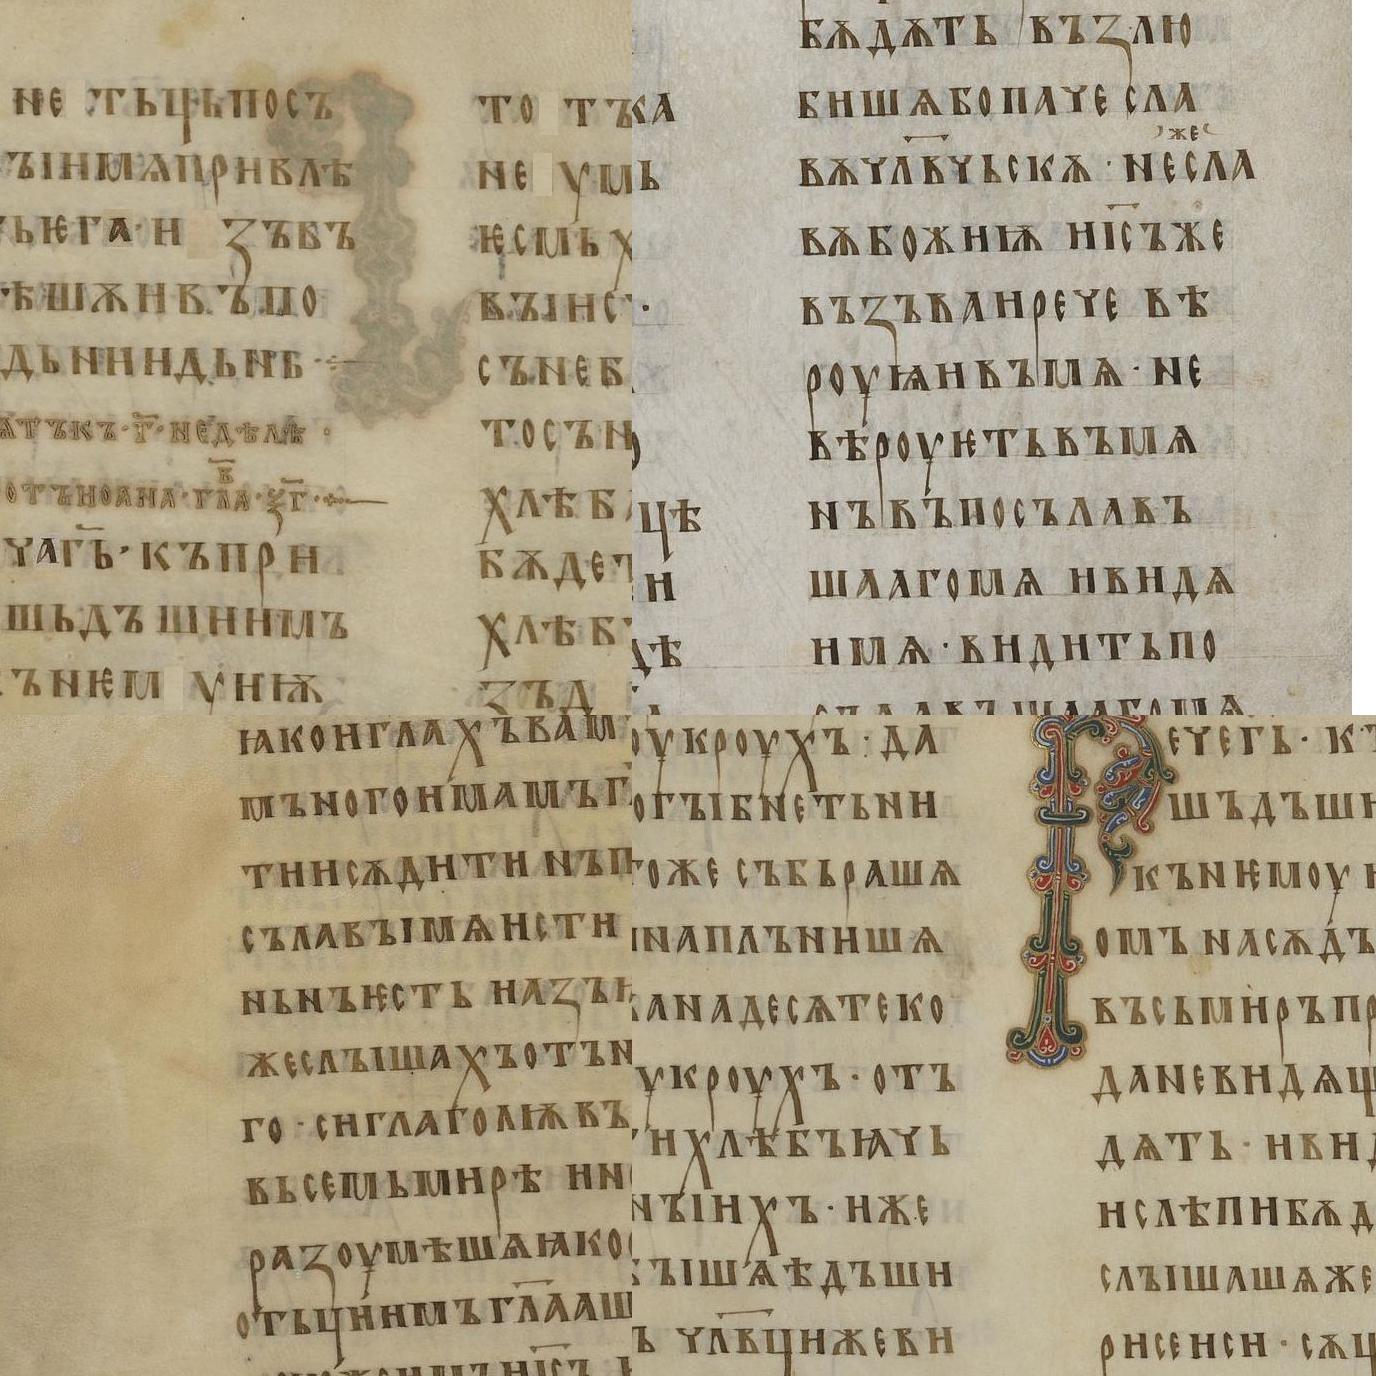 не тьцьпосъ
ъінмапривлѣ
ьѥга·и зъвъ
ѣшѫи въпо
дьнииндьнѣ
атъкъ·г҃·недѣлѣ·
отъиоана·гла҃·ѯг҃·
чагь҃·къпри
шьдъшиимъ
ънѥм униѭ
то тъ
не ум
ѥсмь х
въінс
сънеб
тосън
хлѣб
бѫдет
хлѣб
зъд
ка
ь
цѣ
и
дѣ
бѫдѫть възлю
бишѧбопаче сла
вѫчл҃вчьскѫ·несла
же
вѫбожиѩ ніс҃ъже
възъваирече вѣ
роуѩивъмѧ·не
вѣроуѥтьвъмѧ
нъвъпосълавъ
шаагомѧ ивидѧ
имѧ·видитьпо
сълавъшаагомѧ
ꙗкоиглахъвам
мъногоимамъг
тиисѫдити нъп
сълавъімѧисти
ньнъѥсть иазъ
жеслъішахъотън
го·сиглаголѭвъ
вьсемьмирѣ ин
разоумѣшѧꙗко
отьциимъгл҃ааш
оукроухъ·да
огъібнетьни
тоже събърашѧ
инаплънишѧ
анадесѧтеко
укроухъ·отъ
ихлѣбъꙗчь
нъіихъ·иже
ъішѧѣдъши
ъ чл҃вцижеви
Речегь·къ
шъдъши
кънѥмоу
омъ насѫдъ
въсьмиръпр
даневидѧщ
дѧть·ивид
ислѣпибѫд
слъішашѧже
рисеиси·сѫщ